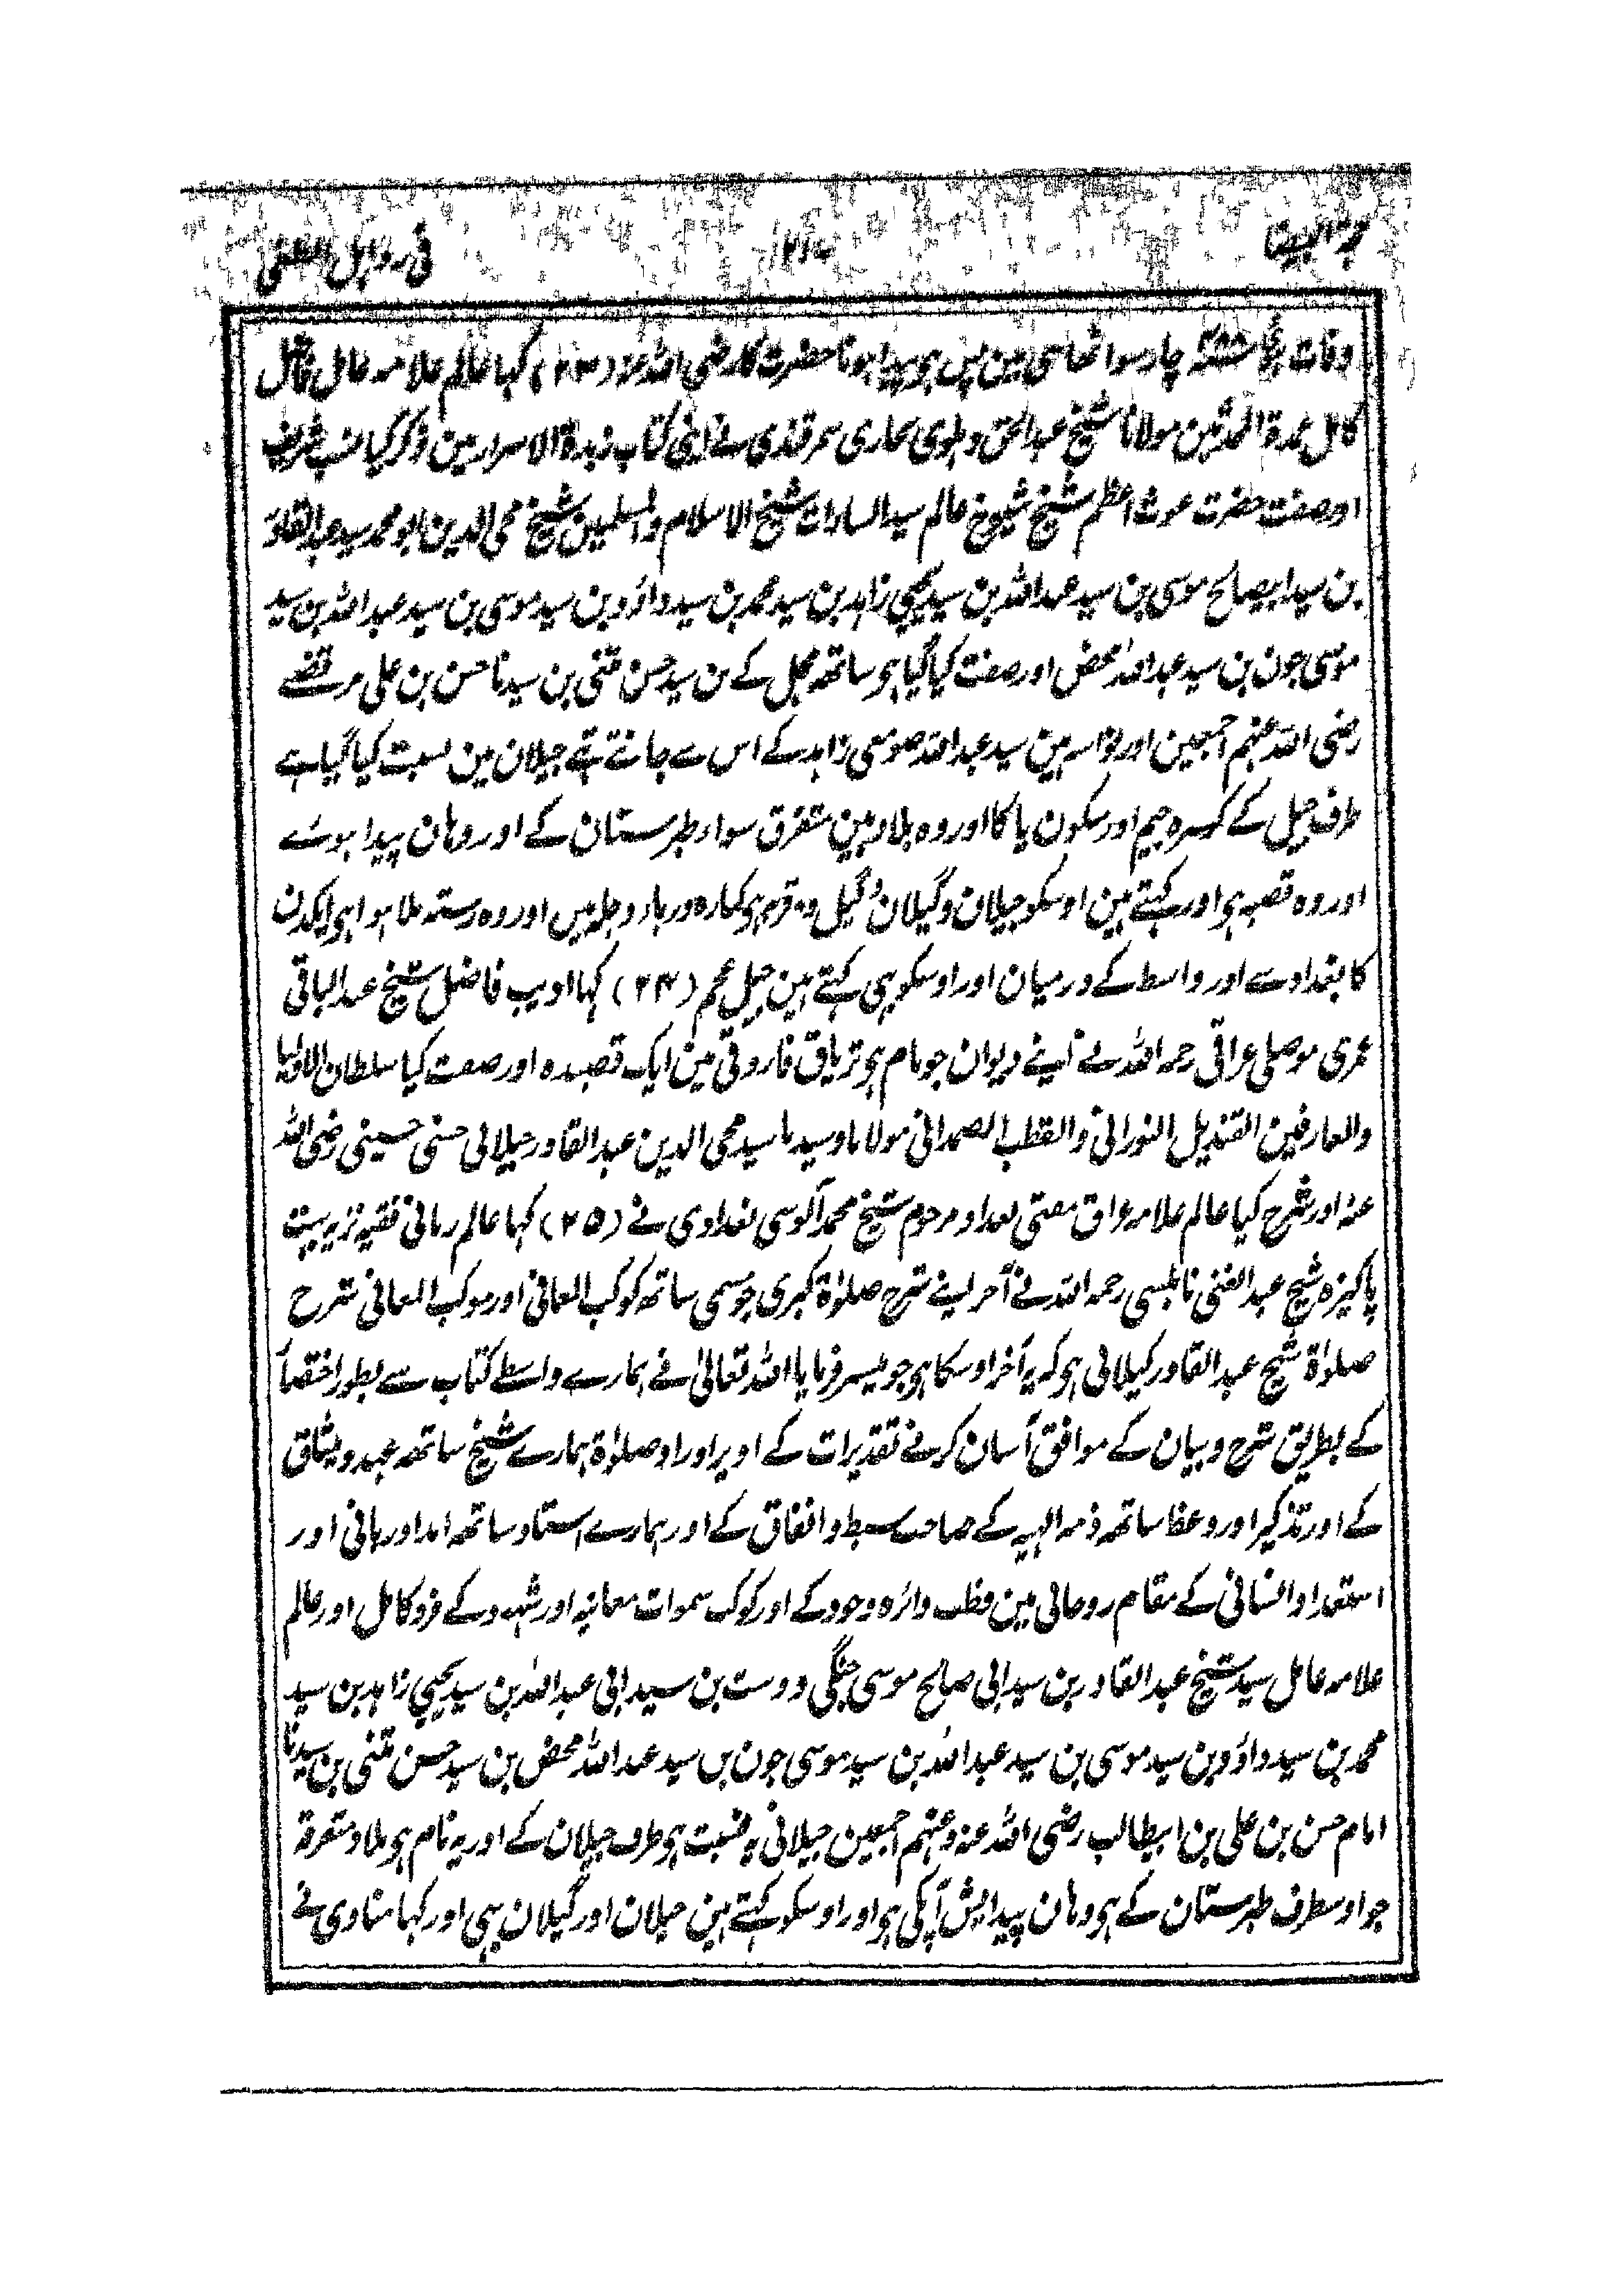 چار سو اٹھاسی مین پس ہو پیدا ہونا حضرت کا رضی اللہ عنہ (۲۳) کہا عالم علامہ عامل فاضل
کامل عمدۃ المحدثین مولانا شیخ عبدالحق دہلوی بخاری سمرقندی نے اپنی کتاب زبدۃ الاسرار مین ذکر کیا نسب شریف
اور صفت حضرت غوث اعظم شیخ شیوخ عالم سید السادات شیخ الاسلام والمسلمین شیخ محی الدین ابو محمد سید عبدالقادر
بن سید ابیصالح موسی بن سید عبداللہ بن سید یحیی زاہد بن سید محمد بن سید داؤد بن سید موسی بن سید عبداللہ بن سید
موسی جون بن سید عبداللہ محض اور صفت کیا گیا ہو ساتھہ مجل کے بن سید حسن مثنی بن سیدنا حسن بن علی مرتضے
رضی اللہ عنہم اجمعین اور نواسہ ہین سید عبداللہ صومعی زاہد کے اس سے جانے تھے جیلان مین نسبت کیا گیا ہے
طرف جیل کے کسرہ جیم اور سکون یا کا اور وہ بلاد ہین متفرق سواء طبرستان کے اور وہان پیدا ہوئے
اور وہ قصبہ ہو اور کہتے ہین اوسکو جیلان و گیلان و گیل وہ قریہ ہو کنارہ دریاء دجلہ مین اور وہ رستہ ملا ہوا ہو ایکدن
کا بغداد سے اور واسط کے درمیان اور اوسکو بھی کہتے ہین جیل عجم (۲۴) کہا ادیب فاضل شیخ عبدالباقی
عمری موصلی عراقی رحمہ اللہ نے اپنے دیوان جو نام ہو تریاق فاروقی مین ایک قصیدہ اور صفت کیا سلطان الاولیا
والعارفین القندیل النورانی والقطب الصمدانی مولانا و سیدنا سید محی الدین عبدالقادر جیلانی حسنی حسینی رضی اللہ
عنہ اور شرح کیا عالم علامہ عراق مفتی بغداد مرحوم شیخ محمد آلوسی بغدادی نے (۲۵) کہا عالم ربانی فقیہ نزیہ بیت
پاکیزہ شیخ عبدالغنی نابلسی رحمہ اللہ نے آخر اپنے شرح صلوٰۃ کبری جو مسمی ساتھہ کوکب المعانی اور موکب المعانی شرح
صلوٰۃ شیخ عبدالقادر کیلانی ہو کہ یہ آخر اوسکا ہو جو میسر فرمایا اللہ تعالیٰ نے ہمارے واسطے کتاب سے بطور اختصاً
کے بطریق شرح و بیان کے موافق آسان کرنے تقدیرات کے اوپر اوراد صلوٰۃ ہمارے شیخ ساتھہ عہد و میثاق
کے اور تذکیر اور وعظ ساتھہ ذمہ الہیہ کے صاحب سبط و اتفاق کے اور ہمارے استاد ساتھہ امداد ربانی اور
استعداد انسانی کے مقام روحانی مین قطب دائرہ وجود کے اور کوکب سموات معانیہ اور شہود کے فرد کامل اور عالم
علامہ عامل سید شیخ عبدالقادر بن سید ابی صالح موسی جنگی دوست بن سید ابی عبداللہ بن سید یحیی زاہد بن سید
محمد بن سید داؤد بن سید موسی بن سید عبداللہ بن سید موسی جون بن سید عبداللہ محض بن سید حسن مثنی بن سیدنا
امام حسن بن علی بن ابیطالب رضی اللہ عنہ و عنہم اجمعین جیلانی یہ نسبت ہو طرف جیلان کے اور یہ نام ہو بلاد متفرقۃ
جو اوسطرف طبرستان کے ہو وہان پیدایش آپکی ہو اور اوسکو کہتے ہین جیلان اور گیلان بھی اور کہا مناوی نے